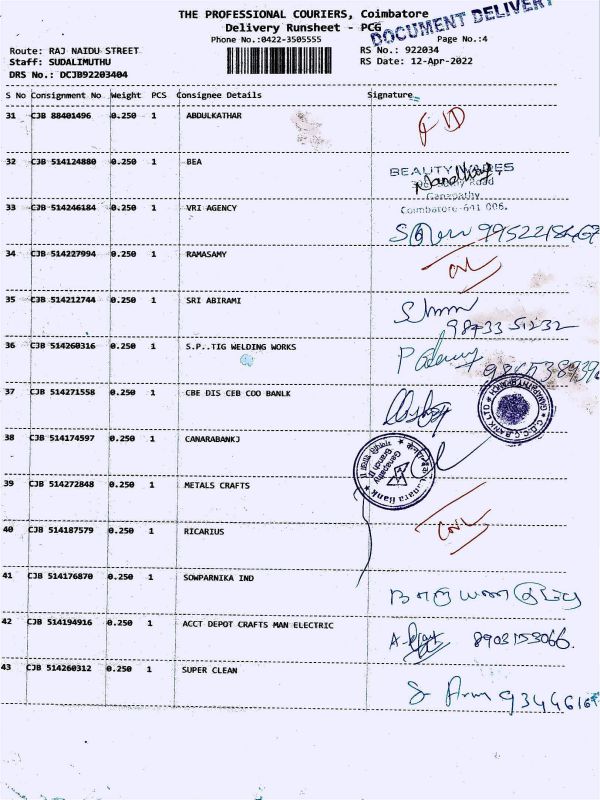 THE PROFESSIONAL COURIERS, Coimbatore
DOCUMENT DELIVERY
Delivery Runsheet - PCG
Phone No.:0422-3505555 Page No.:4
Route: RAJ NAIDU STREET RS No.: 922034
Staff: SUDALIMUTHU RS Date: 12-Apr-2022
DRS No.: DCJB92203404
S No Consignment No Weight PCS Consignee Details Signature
31 CJB 88401496 0.250 1 ABDULKATHAR
32 CJB 514124880 0.250 1 BEA
BEAUTY
Road
Ganapathy
Coimbatore-641 006.
33 CJB 514246184 0.250 1 VRI AGENCY
34 CJB 514227994 0.250 1 RAMASAMY
35 CJB 514212744 0.250 1 SRI ABIRAMI
36 CJB 514260316 0.250 1 S.P..TIG WELDING WORKS
37 CJB 514271558 0.250 1 CBE DIS CEB COO BANLK
38 CJB 514174597 0.250 1 CANARABANKJ
Ganapathy
Branch
39 CJB 514272848 0.250 1 METALS CRAFTS
40 CJB 514187579 0.250 1 RICARIUS
41 CJB 514176870 0.250 1 SOWPARNIKA IND
42 CJB 514194916 0.250 1 ACCT DEPOT CRAFTS MAN ELECTRIC
8903153066.
43 CJB 514260312 0.250 1 SUPER CLEAN